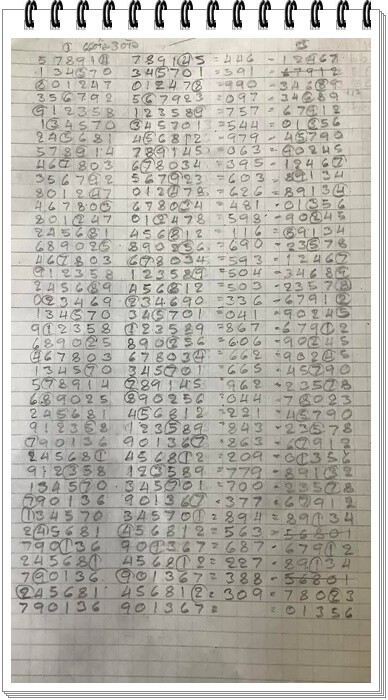 578914 789145 = 446 - 12467
134570 345701 = 591 - 67912
801247 012478 = 990 - 34689
356792 567923 = 097 - 34689
912358 123589 = 757 - 67912
134570 345701 = 544 - 01356
245681 456812 = 979 - 45790
578914 789145 = 063 - 90245
467803 678034 = 395 - 12467
356792 567923 = 603 - 89134
801247 012478 = 626 - 89134
467803 678034 = 481 - 01356
801247 012478 = 598 - 90245
245681 456812 = 116 - 89134
689025 890256 = 690 - 23578
467803 678034 = 593 - 12467
912358 123589 = 504 - 34689
245689 456812 = 503 - 23578
023469 234690 = 336 - 67912
134570 345701 = 041 - 90245
912358 123589 = 867 - 67912
689025 890256 = 606 - 90245
467803 678034 = 662 - 90245
134570 345701 = 665 - 45790
578914 789145 = 962 - 23578
689025 890256 = 044 - 78023
245681 456812 = 221 - 45790
912358 123589 = 843 - 23578
790136 901367 = 863 - 67912
245681 456812 = 209 - 01356
912358 123589 = 779 - 89132
134570 345701 = 700 - 23578
790136 901367 = 377 - 67912
134570 345701 = 894 = 89134
245681 456812 = 563 = 56801
790136 901367 = 687 - 67912
245681 456812 = 227 - 89134
790136 901367 = 388 - 56801
245681 456812 = 309 = 78023
790136 901367 = = 01356